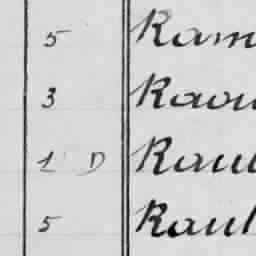 5 Ram
3 Raou
1 D Raul
5 Raul